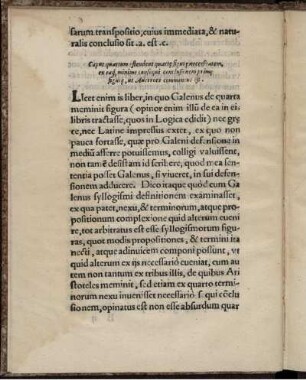 sarum transpositio, cuius immediata, & natu
ralis conclusio sit .a. est .c.
LIcet enim is liber, in quo Galenus de quarta
meminit figura (opinor enim illũ de ea in ei
libris tractasse, quos in Logica edidit) nec grę
ce, nec Latine impressus extet, ex quo non
pauca fortasse, quę pro Galeni defensione in
mediũ afferre potuissemus, colligi valuissent,
non tam̃ẽ desistam id scribere, quod mea sen
tentia posset Galenus, si viueret, in sui defen
sionem adducere. Dico itaque quòd cum Ga
lenus syllogismi definitionem examinasset,
ex qua patet, nexu, & terminorum, atque pro
positionum complexione quid alterum eueni
re, tot arbitratus est esse syllogismorum figu
ras, quot modis propositiones, & termini ita
necti, atque adinuicem componi possunt, vt
quid alterum ex ijs necessariò eueniat, cum au
tem non tantum ex tribus illis, de quibus Ari
stoteles meminit, sed etiam ex quarto termi-
norum nexu inuenisset necessariò .s. qui cõclu
sionem, opinatus est non esse absurdum quar